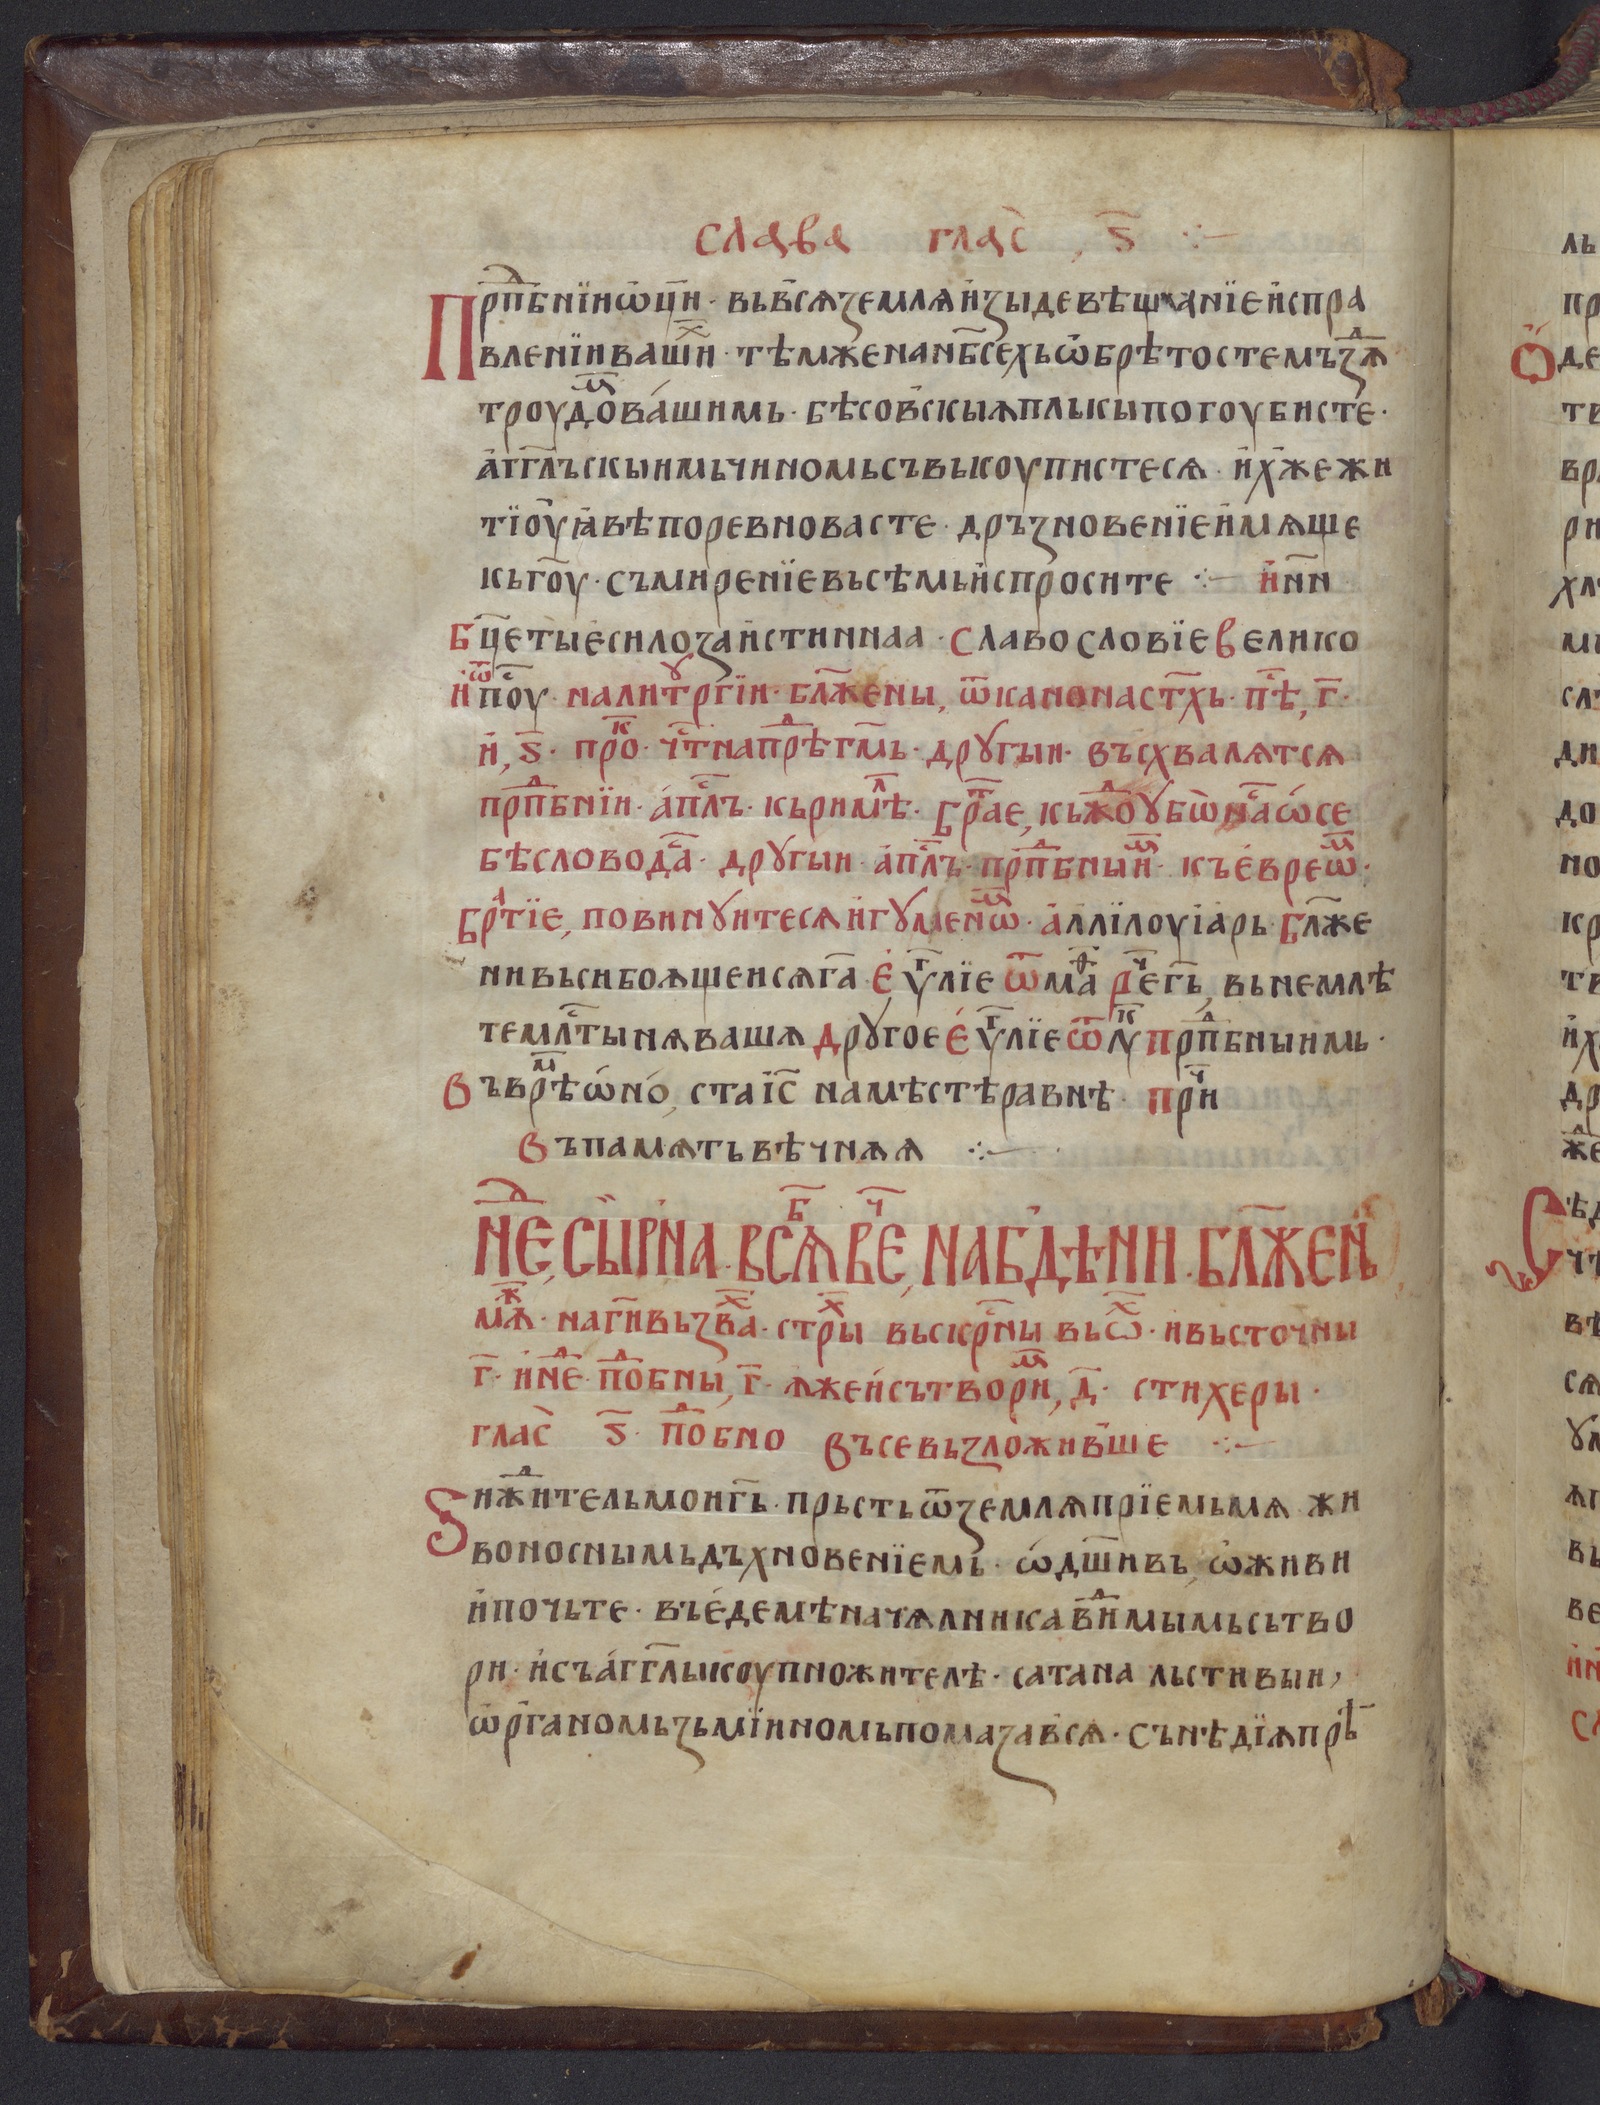 слава глас҃ , ѕ҃ ⁘–
Прⷣпбнїи ѡц҃и · вьвсѧ землѧ изыде вѣщанїе испра
влениїи вашиⷯ · тѣмже на нб҃сехь ѡбрѣтосте мъздѫ
троудоⷨ вашимь · бѣсовскыѧ плькы погоубисте ·
аггл҃ъскыимь чиномь съвькоупистесѧ · ихже жи
тїоу ꙗвѣ поревновасте · дръзновенїе имѫще
кь гоу҃ · съмиренїе вьсѣмь испросите ⁘– и нн҃и
Бц҃е ты еси лоза истиннаа · Славословїе велико
и ѿпоⷭу · на литⷬ҇ргїи · блж҃ены, ѿ канона ст҃хь · пѣⷭ, г҃ ·
и, ѕ҃ · проⷦ · чⷭ҇тна прѣⷣ гм҃ь · другыи · въсхвалѧтсѧ
прⷣпбнїи · апⷭ҇лъ · кь римлѣⷨ · братⷮае, кьждоу бо на⸱ⷭ ѡ се
бѣ слово даⷭ · другыи · апⷭ҇лъ · прⷣпбныиⷨ · къ евреѡⷨ ·
братїе, повинуитесѧ игуменѡⷨ · аллїлоуїарь · Блж҃е
ни вьси боѫщеисѧ га҃ еуⷢлїе ѿ маⷴ реⷱ гь҃, вьнемлѣ
те млⷭ҇тынѧ вашѧ другое еуⷢлїе ѿ луⷦ прⷣпбныимь ·
Въ врⷨѣ ѡно, ста іс҃ на мѣстѣ равнѣ · приⷱ
Въ памѧть вѣчнѫѧ ⁘–
Неⷣ, сырна · в сѫⷠ веⷱ, на бдѣнни · блж҃ень
мѫⷤ · на ги҃ вьзваⷯ · стрыⷯ вьскрⷭ҇ны вь ѡⷯ · и вьсточны
г҃ · и неⷣ поⷣбны, г҃ · ѧже и сътвориⷨ, д҃ · стихеры ·
глас҃ ѕ҃ · поⷣбно въсе вьзложивше ⁘–
Ѕижⷣитель мои гь҃ · прьсть ѿ землѧ прїемь мѧ жи
воноснымь дъхновенїемь · ѡдш҃ивь, ѡживи
и почьте · въ едемѣ начѧлника виⷣмымь сьтво
ри · и съ аггл҃ы коупножителѣ · сатана льстивыи,
ѡрганомь зьмїинномь помазавсѧ · сънѣдїѧ прѣ